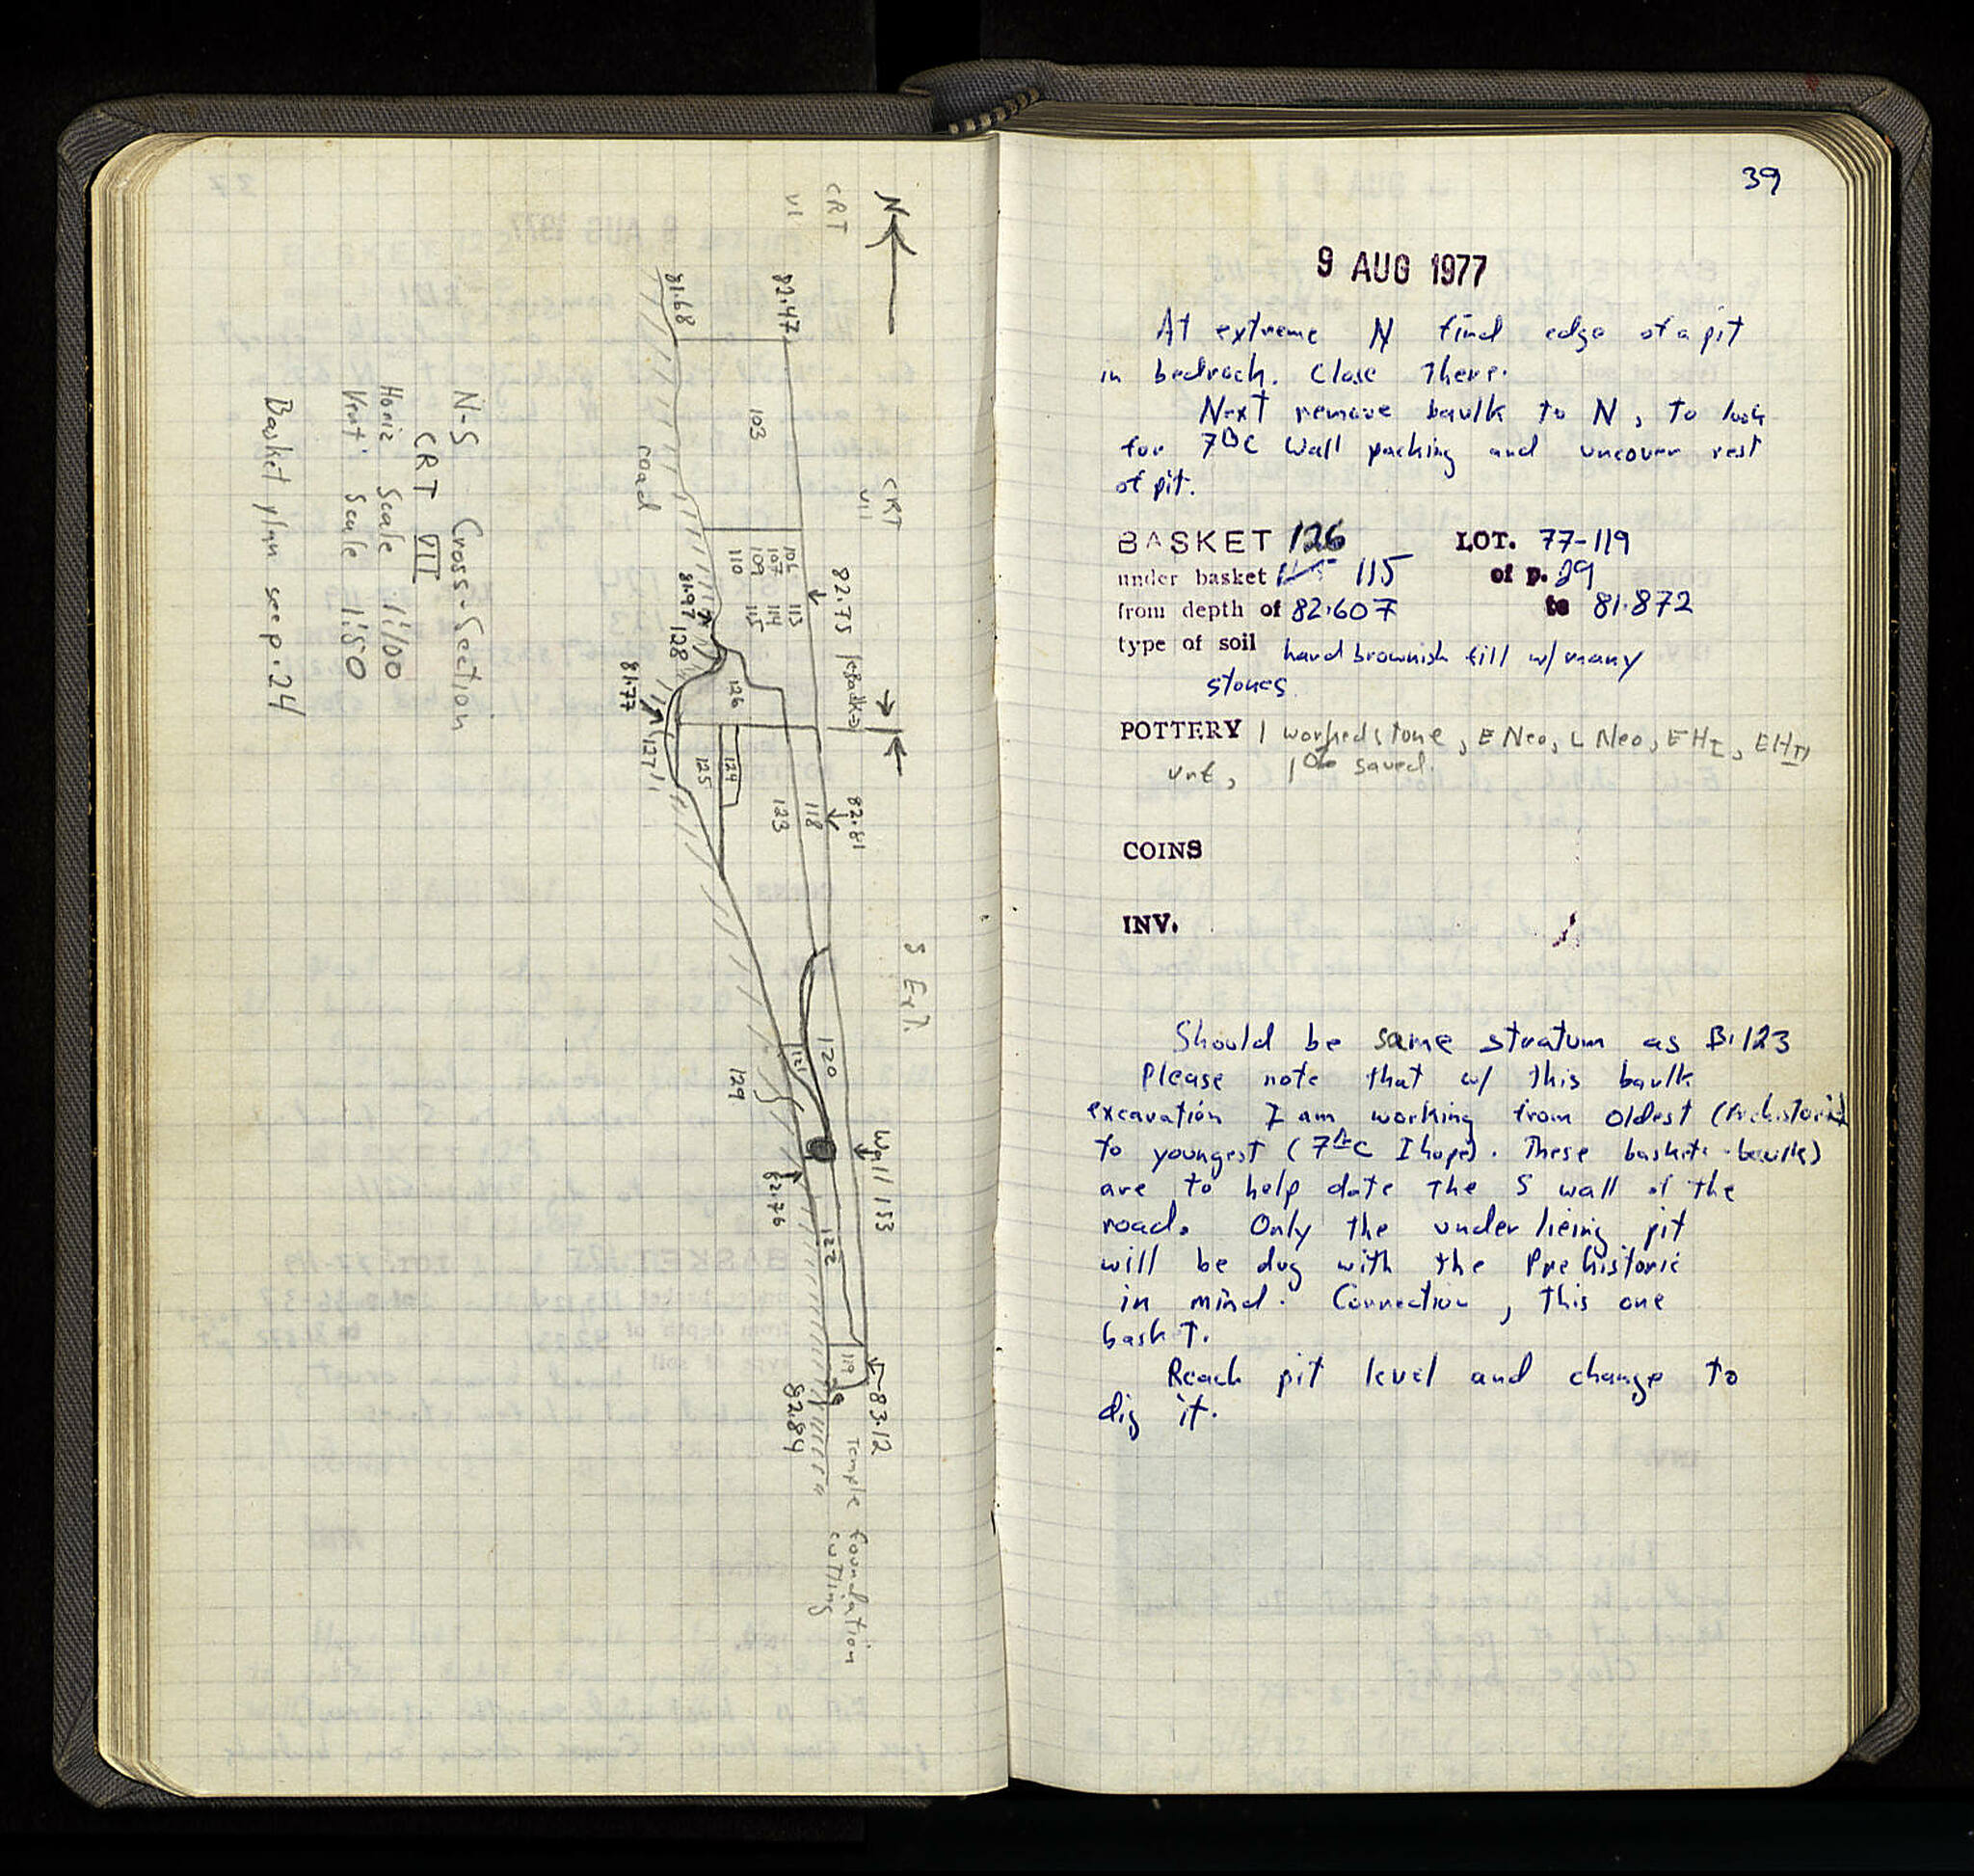 N
CRT
VI
82.47
81.68
103
road
CRT
VII
106
107
109
110
113
114
115
82.75
←Baulk→
81.97
128
126
81.77
127
124
125
123
118
82.81
S Ext.
120
121
129
Wall 153
82.76
122
119
83.12
82.84
Temple foundation
cutting
N-S Cross-Section
CRT VII
Horiz Scale 1:100
Vert. Scale 1:50
Basket plan see p. 24
39
9 AUG 1977
At extreme N find edge of a pit
in bedrock. Close there.
Next remove baulk to N, to look
for 7th C wall packing and uncover rest
of pit.
BASKET 126 LOT. 77-119
under basket 115 of p. 29
from depth of 82.607 to 81.872
type of soil hard brownish fill w/ many
stones
POTTERY 1 worked stone, E Neo, L Neo, EH I, EH II,
unt, 1% saved.
COINS
INV.
Should be same stratum as B. 123
Please note that w/ this baulk
excavation I am working from oldest (Prehistoric)
to youngest (7th C I hope). These baskets (baulk)
are to help date the S wall of the
road. Only the under lieing pit
will be dug with the Prehistoric
in mind. Correction, this one
basket.
Reach pit level and change to
dig it.